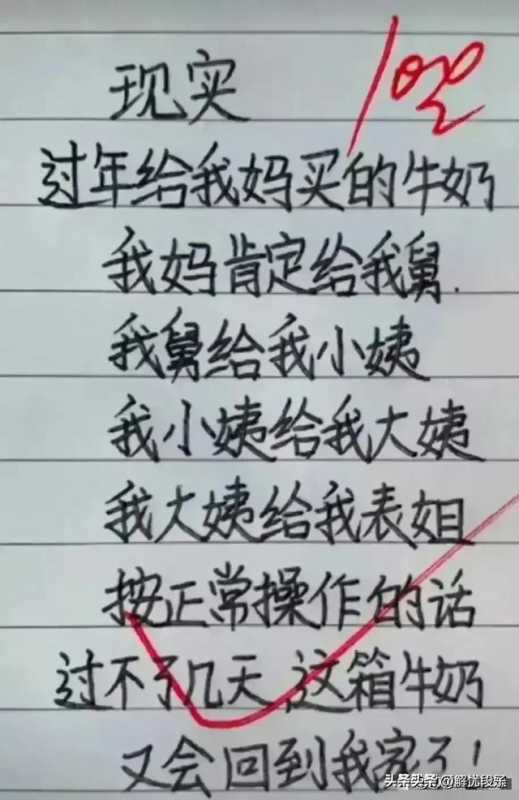 现实
100
过年给我妈买的牛奶
我妈肯定给我舅.
我舅给我小姨
我小姨给我大姨
我大姨给我表姐
按正常操作的话
过不了几天,这箱牛奶
又会回到我家了!
头条头条@解忧段孩